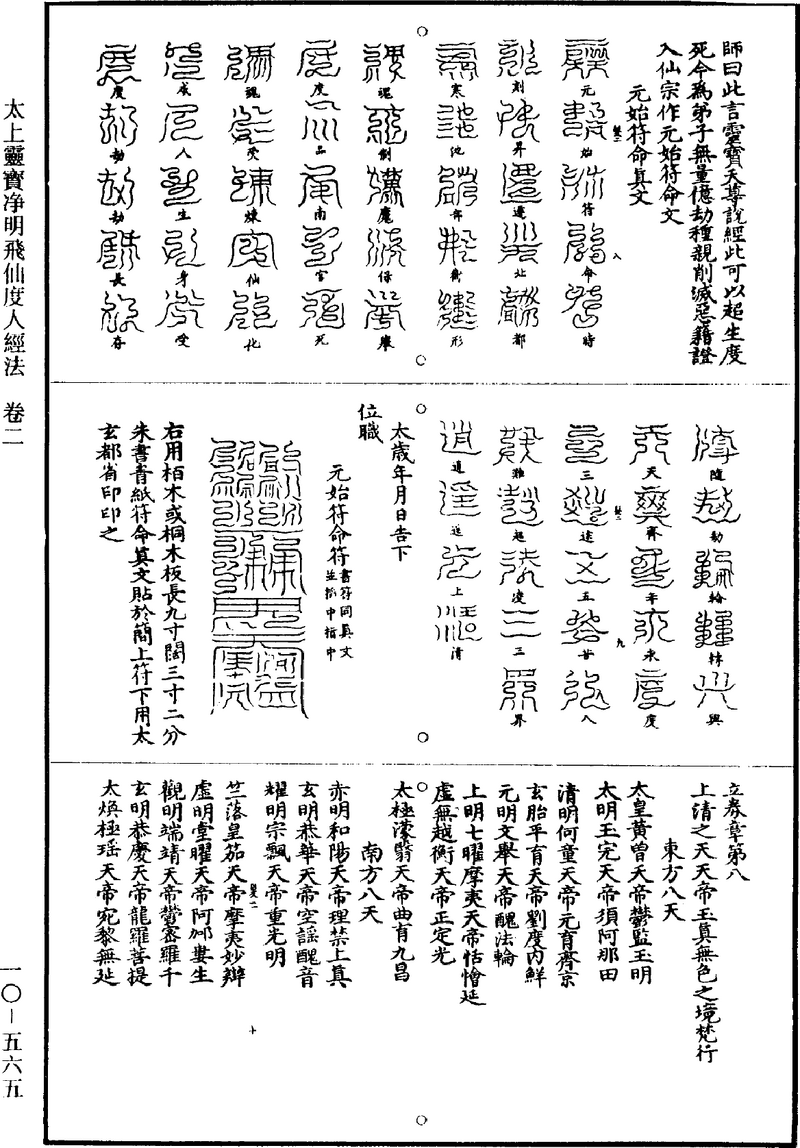 師曰此言靈寶天尊說經此可以起生度
死令為弟子無量億劫種親削滅惡籍證
入仙宗作元始符命文
元始符命真文
元始符命時
刻昇遷北都
寒池部衛形
魂制魔保舉
度品南宮死
魂受煉仙化
成人生身受
度劫劫長存
隨劫輪轉興
天齊年永度
三途五苦八
難超凌三界
逍遥上清
太歲年月日告下
位職
元始符命符書符同真文並掐中指中
右用栢木或桐木板長九寸闊三寸二分
朱書青紙符命真文貼於簡上符下用太
玄都省印印之
立券章第八
上清之天天帝玉真無色之境梵行
東方八天
太皇黃曾天帝鬱監玉明
太明玉完天帝須阿那田
清明何童天帝元育齊京
玄胎平育天帝劉度內鮮
元明文舉天帝醜法輪
上明七曜摩夷天帝恬憕延
虛無越衡天帝正定光
太極濛翳天帝曲育九昌
南方八天
赤明和陽天帝理禁上真
玄明恭華天帝空謡醜音
耀明宗飄天帝重光明
竺落皇笳天帝摩夷妙辯
虛明堂曜天帝阿䣕婁生
觀明端靖天帝鬱密羅千
玄明恭慶天帝龍羅菩提
太煥極瑤天帝宛黎無延
太上靈寶净明飛仙度人經法 卷二
一〇－五六五